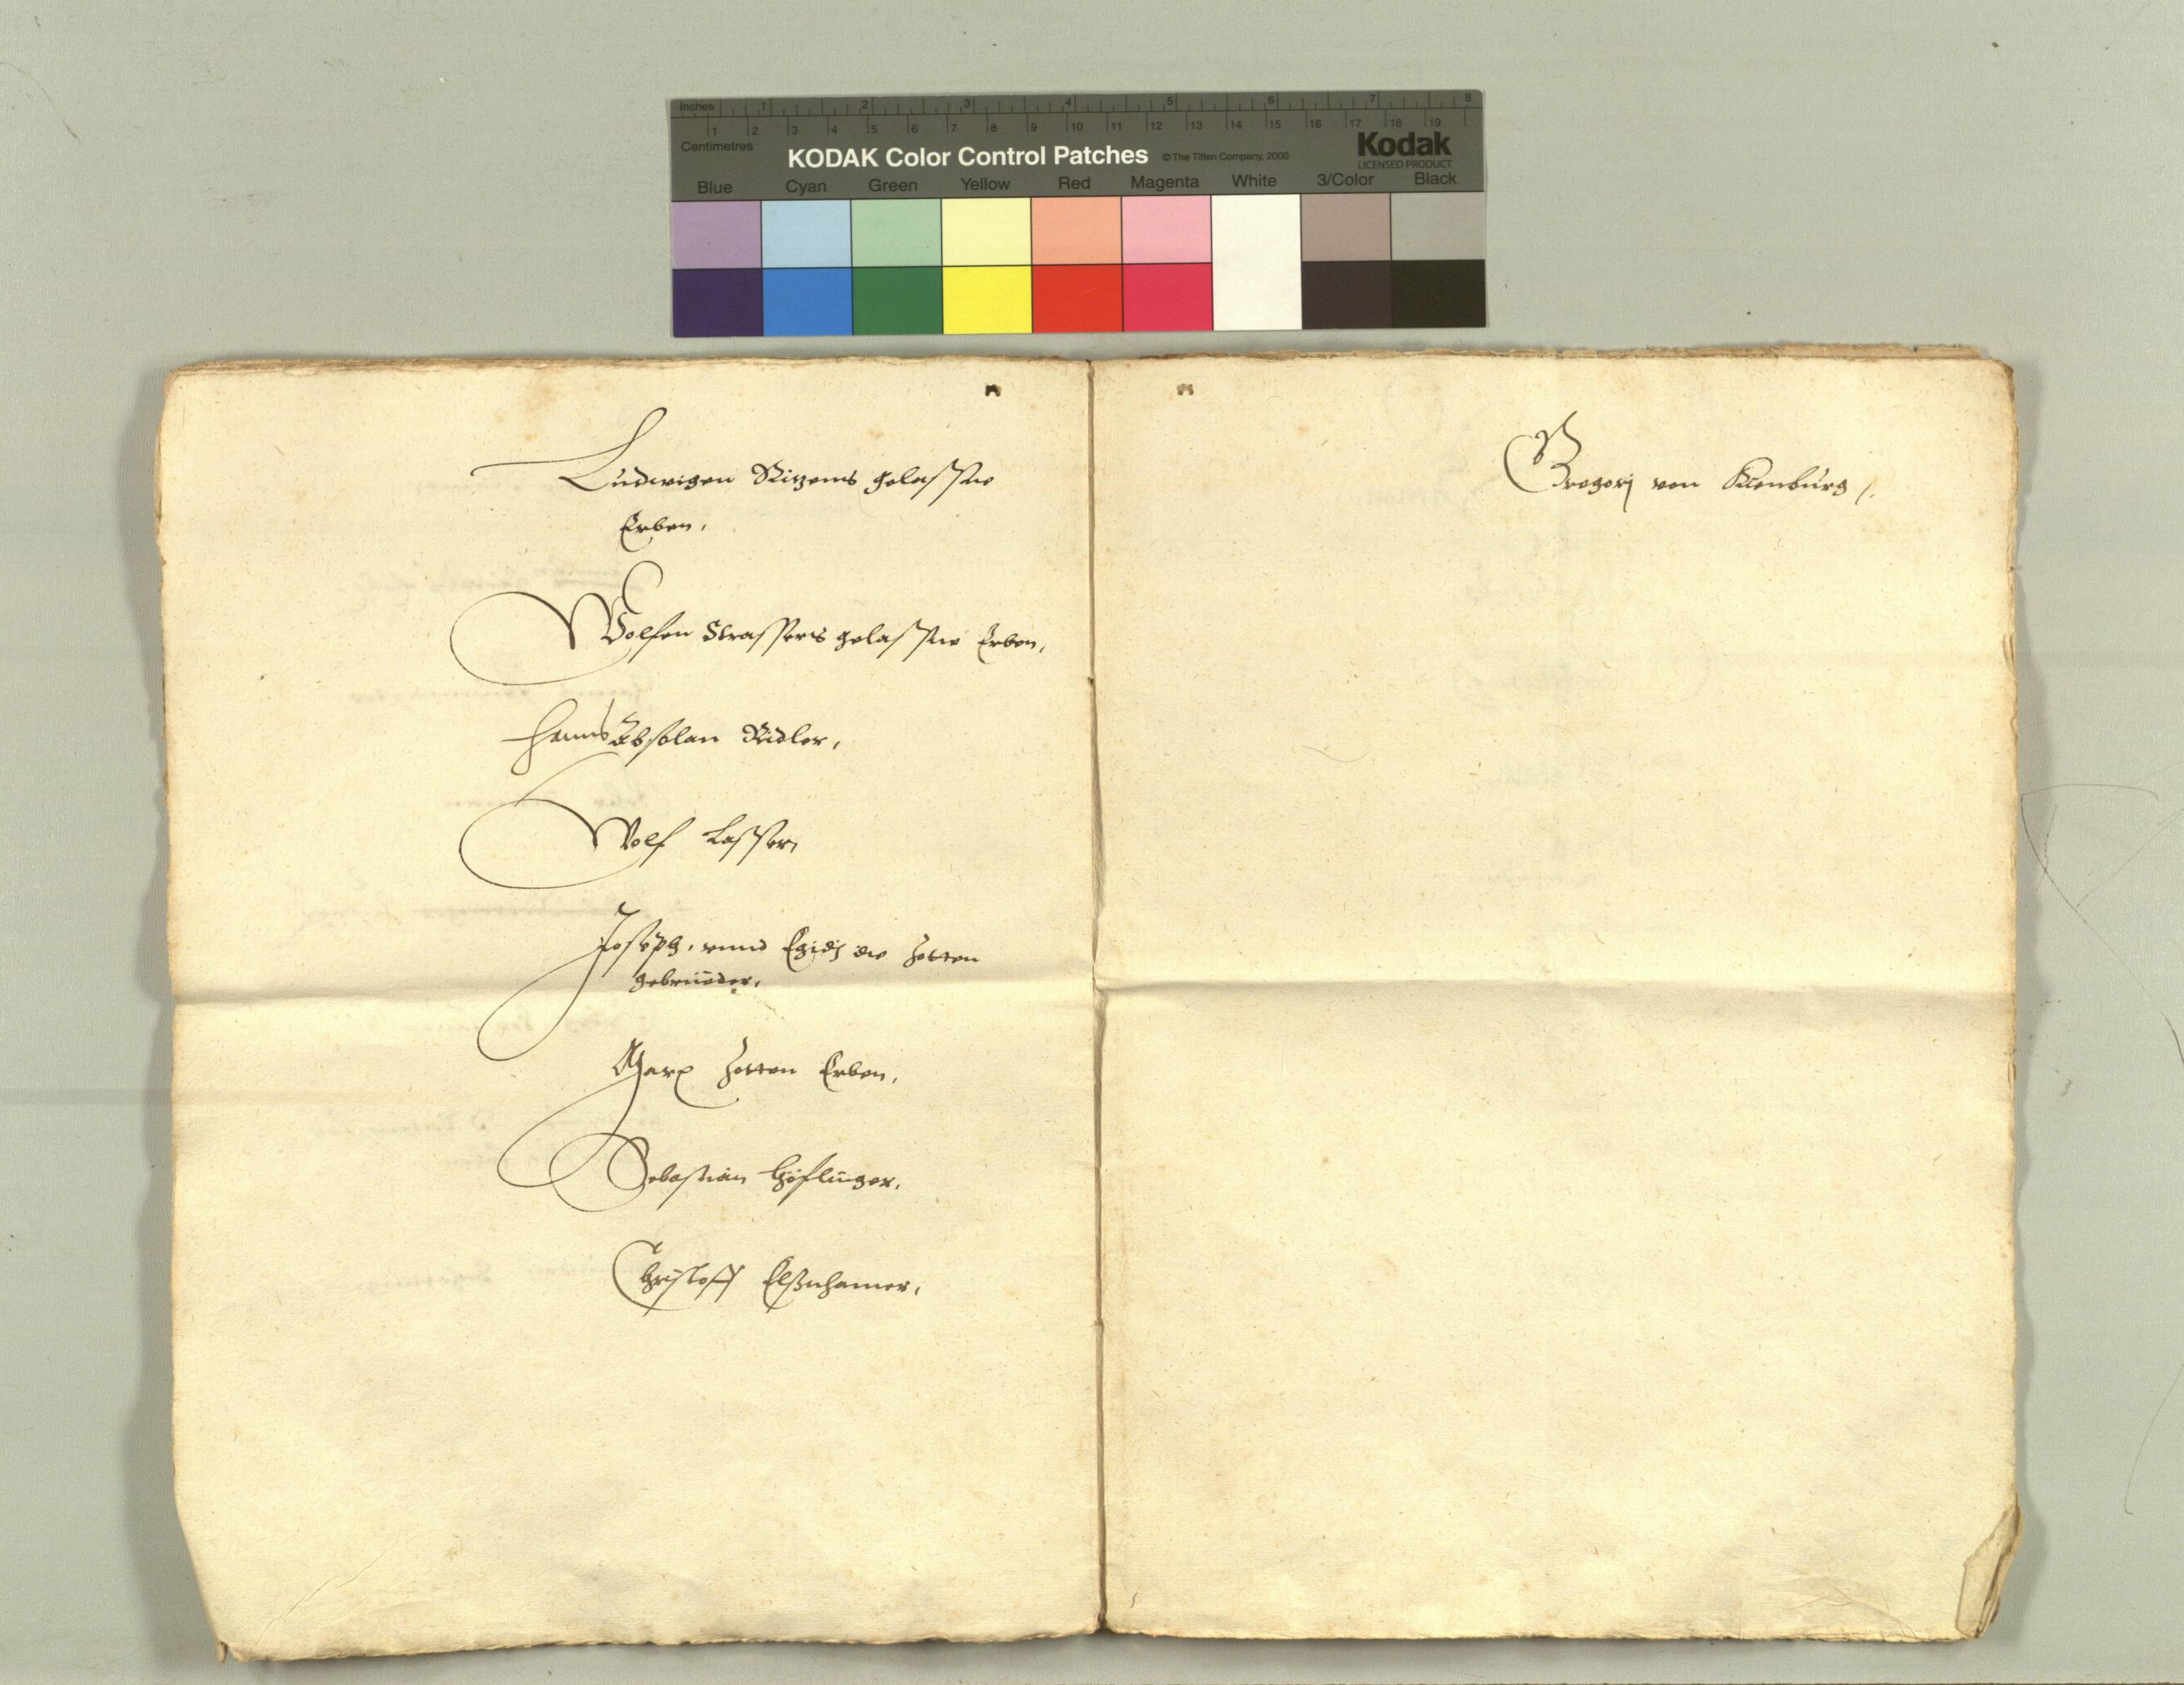 Inches 1 2 3 4 5 6 7 8
1 2 3 4 5 6 7 8 9 10 11 12 13 14 15 16 17 18 19
Centimetres
KODAK Color Control Patches © The Tiffen Company, 2000 Kodak
LICENSED PRODUCT
Blue Cyan Green Yellow Red Magenta White 3/Color Black
Ludwigen Ritzems gelassne
Erben,
Wolfen Strassers gelassne Erben,
Hanns Absolan Ridler,
Wolf Lasser,
Joseph, vnnd Egidj die Zotten
gebrüeder,
Marx Zotten Erben,
Sebastian Höflinger,
Christoff Elsenhamer,
Gregorj von Kienburg /.